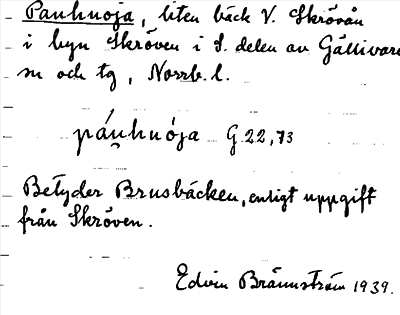 Pauhuoja, liten bäck V. Skrövån
i byn Skröven i S. delen av Gällivare
sn och tg, Norrb. l.
páu̯huója G 22,73
Betyder Brusbäcken, enligt uppgift
från Skröven.
Edvin Brännström 1939.